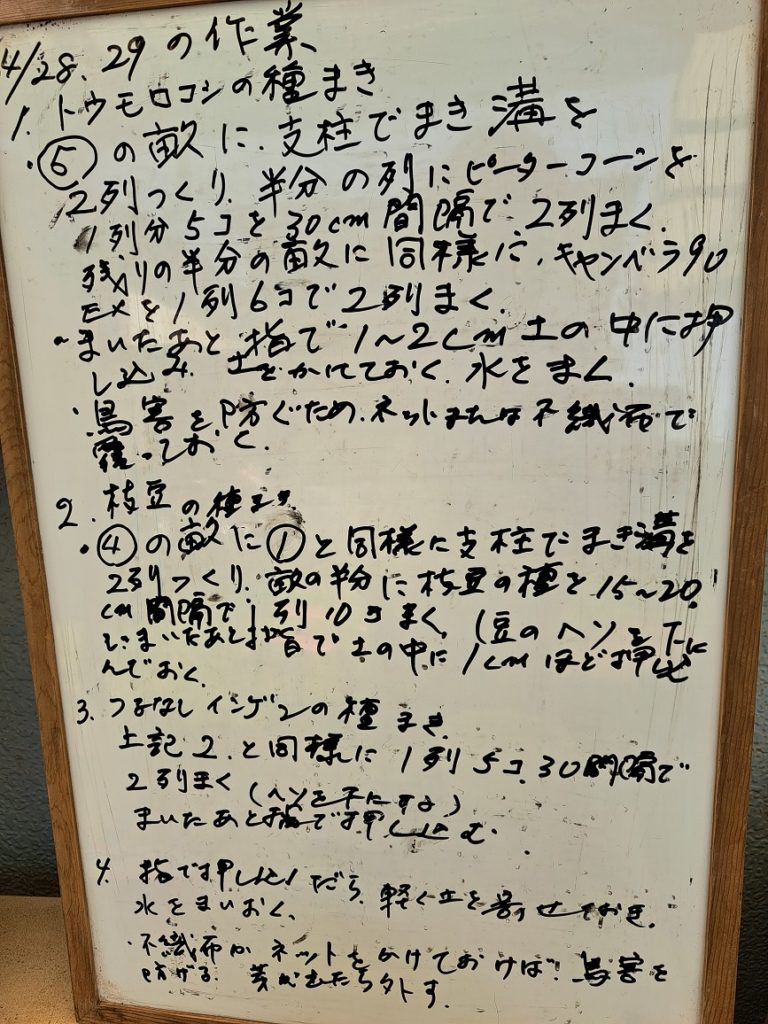 4/28、29の作業
1. トウモロコシの種まき
・⑤の畝に、支柱でまき溝を
2列つくり、半分の列にピーターコーンを
1列分5コを30cm間隔で、2列まく。
残りの半分の畝に同様に、キャンベラ90
EXを1列6コで2列まく。
・まいたあと指で1〜2cm土の中に押
し込み、土をかけておく。水をまく。
・鳥害を防ぐため、ネットまたは不織布で
覆っておく。
2. 枝豆の種まき
・④の畝に①と同様に支柱でまき溝を
2列つくり、畝の半分に枝豆の種を15〜20
cm間隔で1列10コまく。(豆のヘソを下に
し、まいたあとは指で土の中に1cmほど押し込
んでおく。
3. つるなしインゲンの種まき
上記2.と同様に1列5コ、30間隔で
2列まく(ヘソを下にする)
まいたあと指で押し込む。
4. 指で押し込んだら、軽く土を寄せておき、
水をまいおく。
・不織布かネットをかけておけば、鳥害を
防げる。芽が出たら外す。